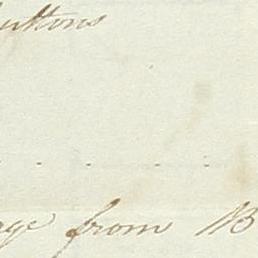 buttons
. . . .
age from B